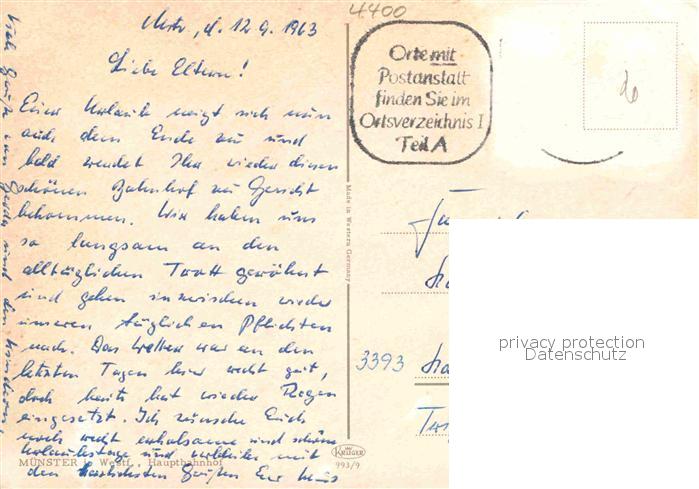 4400
Mstr., d. 12.9.1963
Liebe Eltern!
Euer Urlaub neigt sich nun
auch dem Ende zu und
bald werdet Ihr wieder diesen
schönen Bahnhof zu Gesicht
bekommen. Wir haben uns
so langsam an den
alltäglichen Trott gewöhnt
und gehen inzwischen wieder
unseren täglichen Pflichten
nach. Das Wetter war an den
letzten Tagen hier recht gut,
doch heute hat wieder Regen
eingesetzt. Ich wünsche Euch
noch recht erholsame und schöne
Urlaubstage und verbleibe mit
den herzlichsten Grüßen Euer
Viele Grüße von und den Kindern.
MÜNSTER i. Westf., Hauptbahnhof
Made in Western Germany
KRÜGER
993/9
Orte mit
Postanstalt
finden Sie im
Ortsverzeichnis I
Teil A
3393
privacy protection
Datenschutz